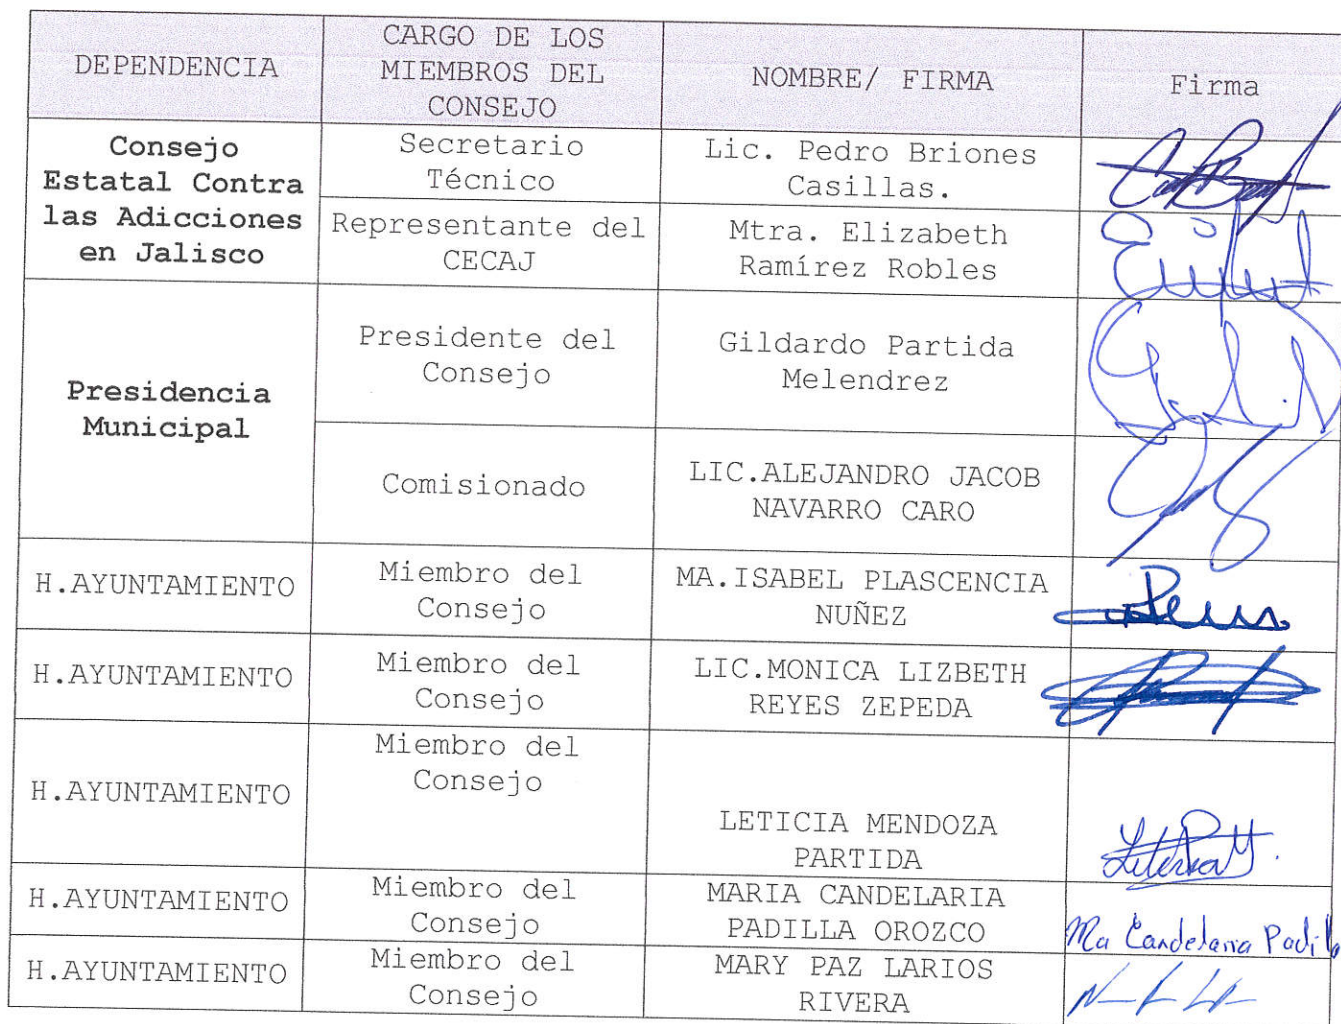 DEPENDENCIA
CARGO DE LOS
MIEMBROS DEL
CONSEJO
NOMBRE/ FIRMA
Firma
Consejo
Estatal Contra
las Adicciones
en Jalisco
Secretario
Técnico
Lic. Pedro Briones
Casillas.
Representante del
CECAJ
Mtra. Elizabeth
Ramírez Robles
Presidencia
Municipal
Presidente del
Consejo
Gildardo Partida
Melendrez
Comisionado
LIC.ALEJANDRO JACOB
NAVARRO CARO
H.AYUNTAMIENTO
Miembro del
Consejo
MA.ISABEL PLASCENCIA
NUÑEZ
H.AYUNTAMIENTO
Miembro del
Consejo
LIC.MONICA LIZBETH
REYES ZEPEDA
H.AYUNTAMIENTO
Miembro del
Consejo
LETICIA MENDOZA
PARTIDA
H.AYUNTAMIENTO
Miembro del
Consejo
MARIA CANDELARIA
PADILLA OROZCO
Ma Candelaria Padilla
H.AYUNTAMIENTO
Miembro del
Consejo
MARY PAZ LARIOS
RIVERA